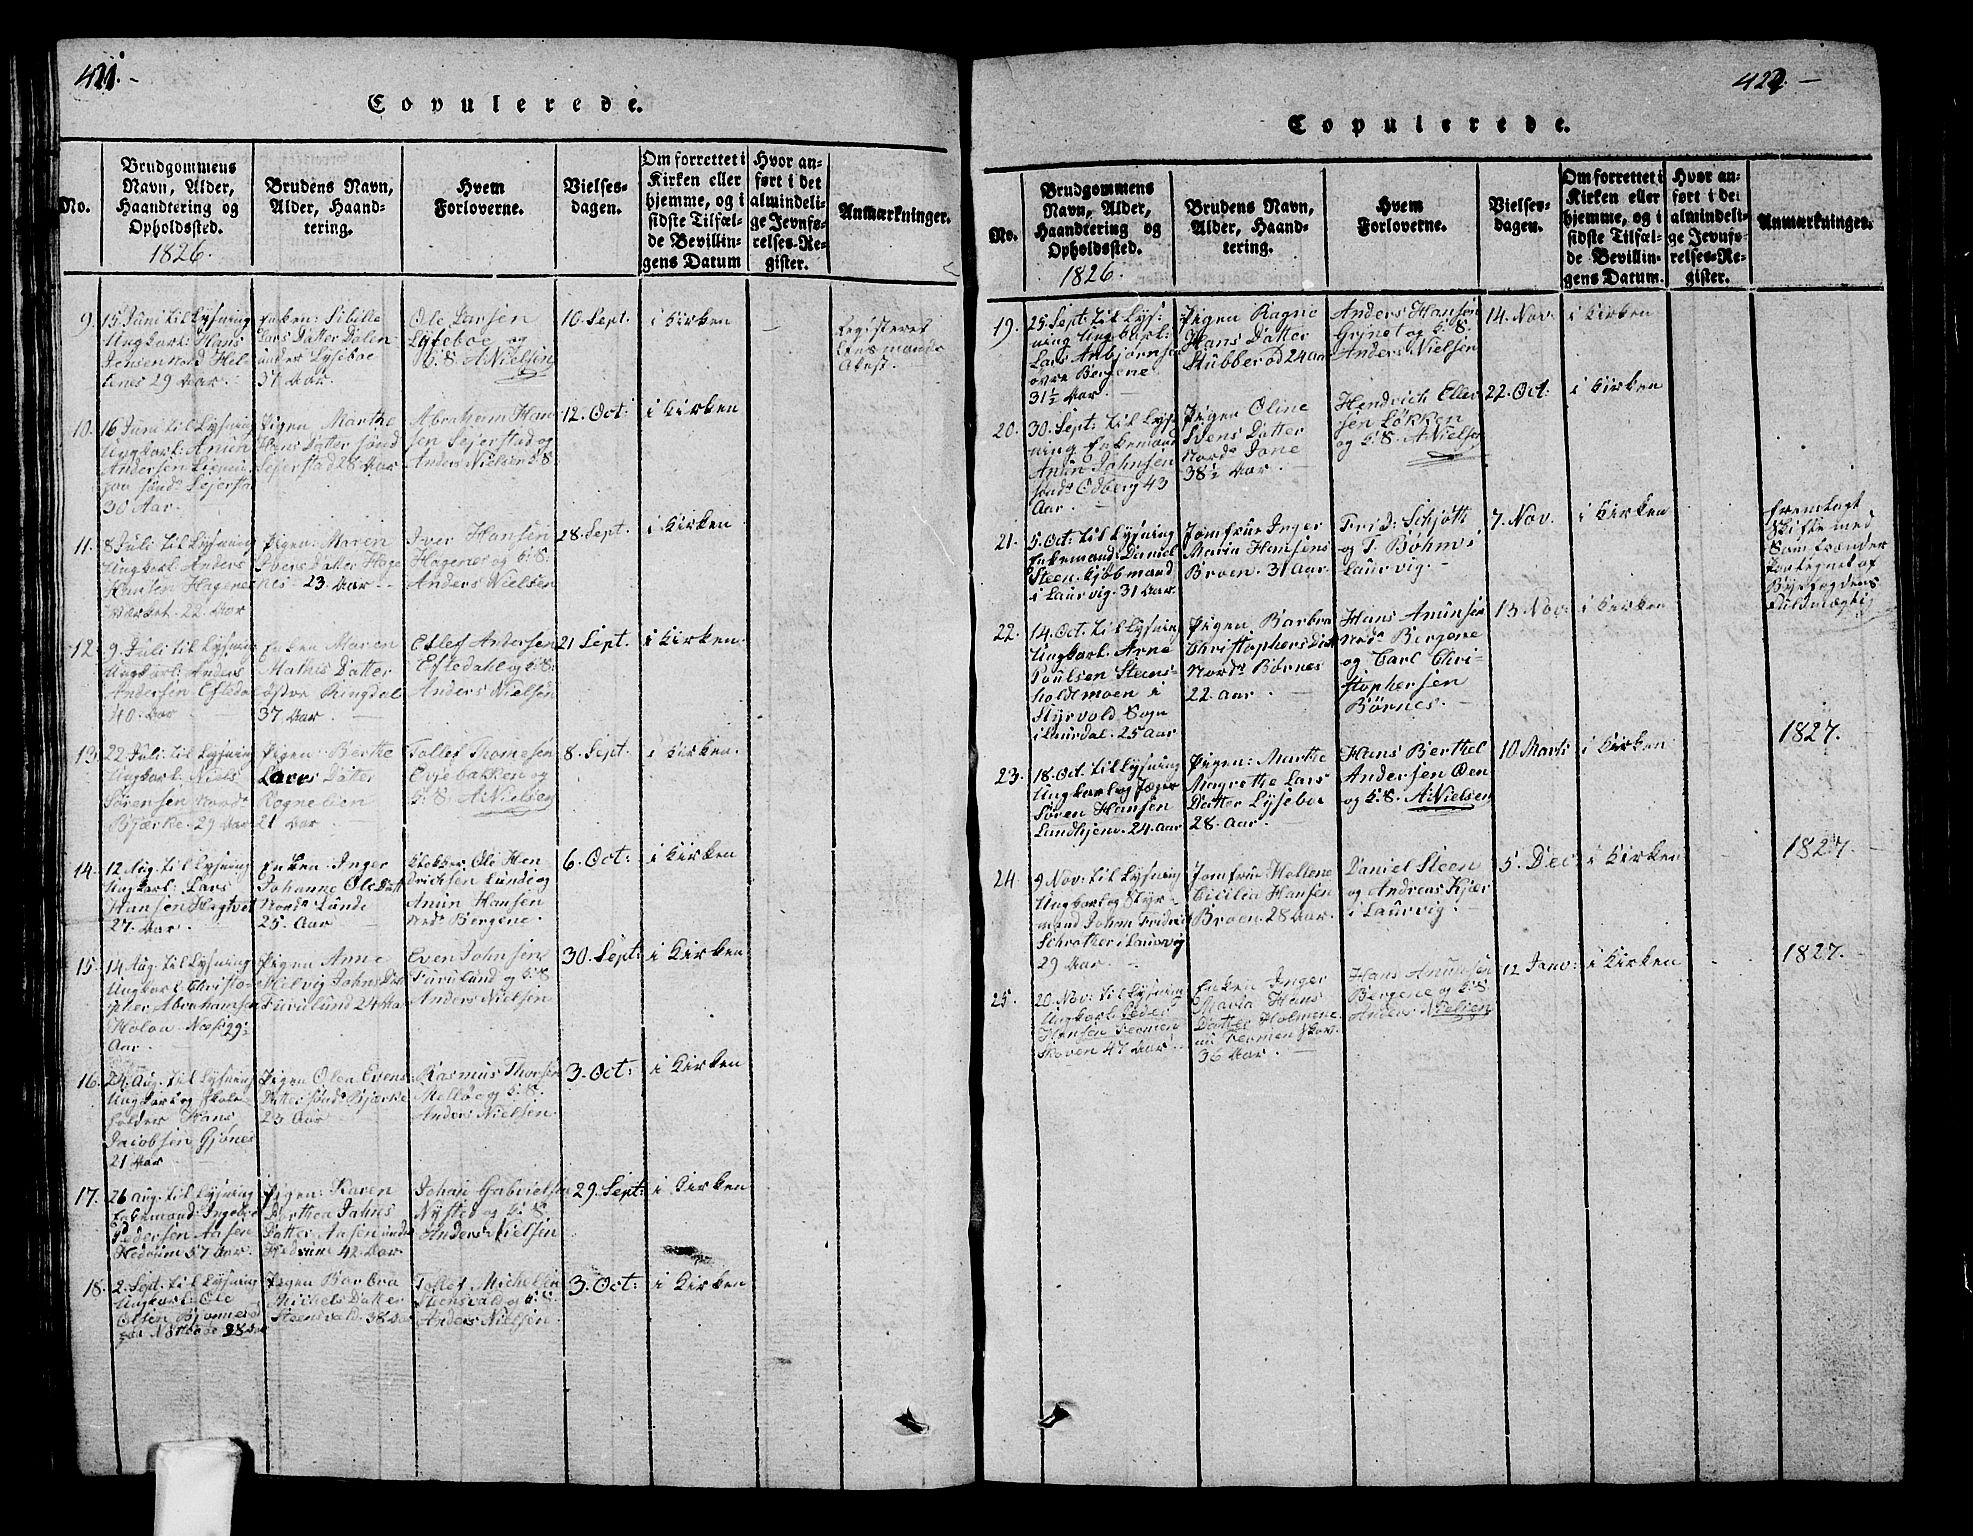 421.
Copulerede.
No.
Brudgommens
Navn, Alder,
Haandtering og
Opholdssted.
1826.
Brudens Navn,
Alder, Haand-
tering.
Hvem
Forloverne.
Vielses-
dagen.
Om forrettet i
Kirken eller
hjemme, og i
sidste Tilfæl-
de Bevillin-
gens Datum
Hvor an-
ført i det
almindeli-
ge Jevnfø-
relses-Re-
gister.
Anmærkninger.
9.
15 Juni til Lysning
Ungkarl: Hans
Jensen nord Hel-
29 Aar.
Enken: Sibille
Lars Datter Dalen
under Lyseboe
37 Aar.
Ole Larsen
Lyseboe og
K:S. A. Nielsen
10. Sept.
i Kirken
10.
16 Juni til Lysning
Ungkarl: Amun
Andersen
paa sønd. Sejersta
30 Aar.
Pigen Marthe
Hans Datter sønd
Sejerstad 28 Aar
Abraham Han
sen Sejerstad og
Anders Nielsen K:S.
12. Oct:
i Kirken
11.
8 Juli til Lysning
Ungkarl: Anders
Hansen Hagenes
22. Aar
Pigen: Maren
Ivers Datter Hage
nes 23 Aar
Iver Hansen
Hagenes og K:S.
Anders Nielsen
28. Sept.
i Kirken
12.
9. Juli til Lysning
Ungkarl: Anders
Andersen Eftedal
40. Aar
Enken Maren
Mathis Datter
østre Ringdal
37 Aar.
Ellef Andersen
Eftedahl og K:S.
Anders Nielsen
21 Sept.
i Kirken.
13.
22 Juli til Lysning
Ungkarl: Niels
Sørensen Nord.
Bjærke. 29 Aar
Pigen: Berthe
Lars Datter
Rognelien
21 Aar.
Tollef Thomesen
Evjebakken og
K:S. A. Nielsen
8. Sept.
i Kirken.
14.
12 Aug. til Lysning
Ungkarl: Lars
Hansen Hegtvet
27. Aar.
Enken: Inger
Johanne Ole Datt
Nord. Lunde
25. Aar
Klokker Ole Hen
drichsen Lunde og
Amun Hansen
Nord. Bergene.
6. Oct:
i Kirken
15.
14 Aug. til Lysning
Ungkarl: Christo-
pher Abrahamsen
Holen Næs
Aar.
Pigen Anne
Helvig Johns Dat
Furulund 24 Aar
Even Johnsen
Furulund og K:S.
Anders Nielsen
30. Sept:
i Kirken
16.
24. Aug. til Lysning
Ungkarl og Skole
holder Hans
Jacobsen Gjønes
21 Aar
Pigen Olea Evens
Datter sønd. Bjærke
23 Aar
Rasmus Thorsen
Melløe og K:S.
Anders Nielsen
3. Oct:
i Kirken
17.
26 Aug. til Lysning
Enkemand: Ingebre
Pedersen Aasen
Hedrum 57 Aar.
Pigen: Karen
Dorthea Johns
Datter Aasen under
Hedrum 42 Aar
Johan Gabrielsen
Nysted og K:S.
Anders Nielsen
29. Sept:
i Kirken
18.
2. Sept. til Lysning
Ungkarl: Ole
Olsen Bjønnerø
Pigen Barbra
Michels Datter
Steensvald. 38 Aar
Tollef Michelsen
Steensvald og K:S.
Anders Nielsen.
3. Oct:
i Kirken
422.
Copulerede.
No.
Brudgommens
Navn, Alder,
Haandtering og
Opholdssted.
1826.
Brudens Navn,
Alder, Haand-
tering.
Hvem
Forloverne.
Vielses-
dagen.
Om forrettet i
Kirken eller
hjemme, og i
sidste Tilfæl-
de Bevillin-
gens Datum.
Hvor an-
ført i det
almindeli-
ge Jevnfø-
relses-Re-
gister.
Anmærkninger.
19.
25 Sept. til Lys:
ning Ungkarl:
Lars Anbjørnsen
øvre Bergene.
31½ Aar.
Pigen Ragne
Hans Datter
Stubberød 24 Aar
Anders Hansen
Grjnet og K:S.
Anders Nielsen
14. Nov.
i Kirken
20.
30. Sept. til Lys
ning Enkemand
Amun Johnsen
sønd. Odberg 43
Aar.
Pigen Oline
Svens Datter
Nord. Jone
38½ Aar.
Hendrich Ellev
sen Løkken
og K:S. A. Nielsen
22. Oct:
i Kirken
21.
5. Oct. til Lysning
Enkemand: Daniel
Steen. Kjøbmand
i Laurvig. 31 Aar.
Jomfrue Inger
Maria Hansens
Broen. 31 Aar.
Frid: Schjøtt
og T. Bøhm i
Laurvig.
7. Nov.
i Kirken
fremlagt
Skifte med
Samfrænder
Byefogdens
Fuldmægtig
22.
14. Oct. til Lysning
Ungkarl. Arne
Poulsen Steens-
holdtmoen i
Styrvold Sogn
i Laurdal. 25 Aar
Pigen Barbra
Christophers Datt
Nord. Børnes
22. Aar.
Hans Amunsen
Nord. Bergene
og Carl Chri-
stophersen
Børnes.
13. Nov.
i Kirken
23.
18. Oct. til Lysning
Ungkarl og Jæger
Søren Hansen
24. Aar
Pigen: Marthe
Magrethe Lars
Datter Lyseboe
28. Aar.
Hans Berthel
Andersen Oen
og K:S. A. Nielsen
10. Marts
i Kirken
1827.
24.
9 Nov: til Lysning
Ungkarl og Styr-
mand Johan Fridrich
Schrøther i Laurvig
29 Aar.
Jomfrue Hellene
Cicilia Hansen
Broen. 28 Aar.
Daniel Steen
og Andreas Kjær
i Laurvig.
5. Dec
i Kirken
1827.
25.
20. Nov: til Lysning
Ungkarl. Peder
Hansen Fermen
Skoven 47 Aar
Enken Inger
Maria Hans
Datter Holmene
nu Fermen skov.
36 Aar.
Hans Amunsen
Bergene og K:S.
Anders Nielsen
12 Janv:
i Kirken
1827.